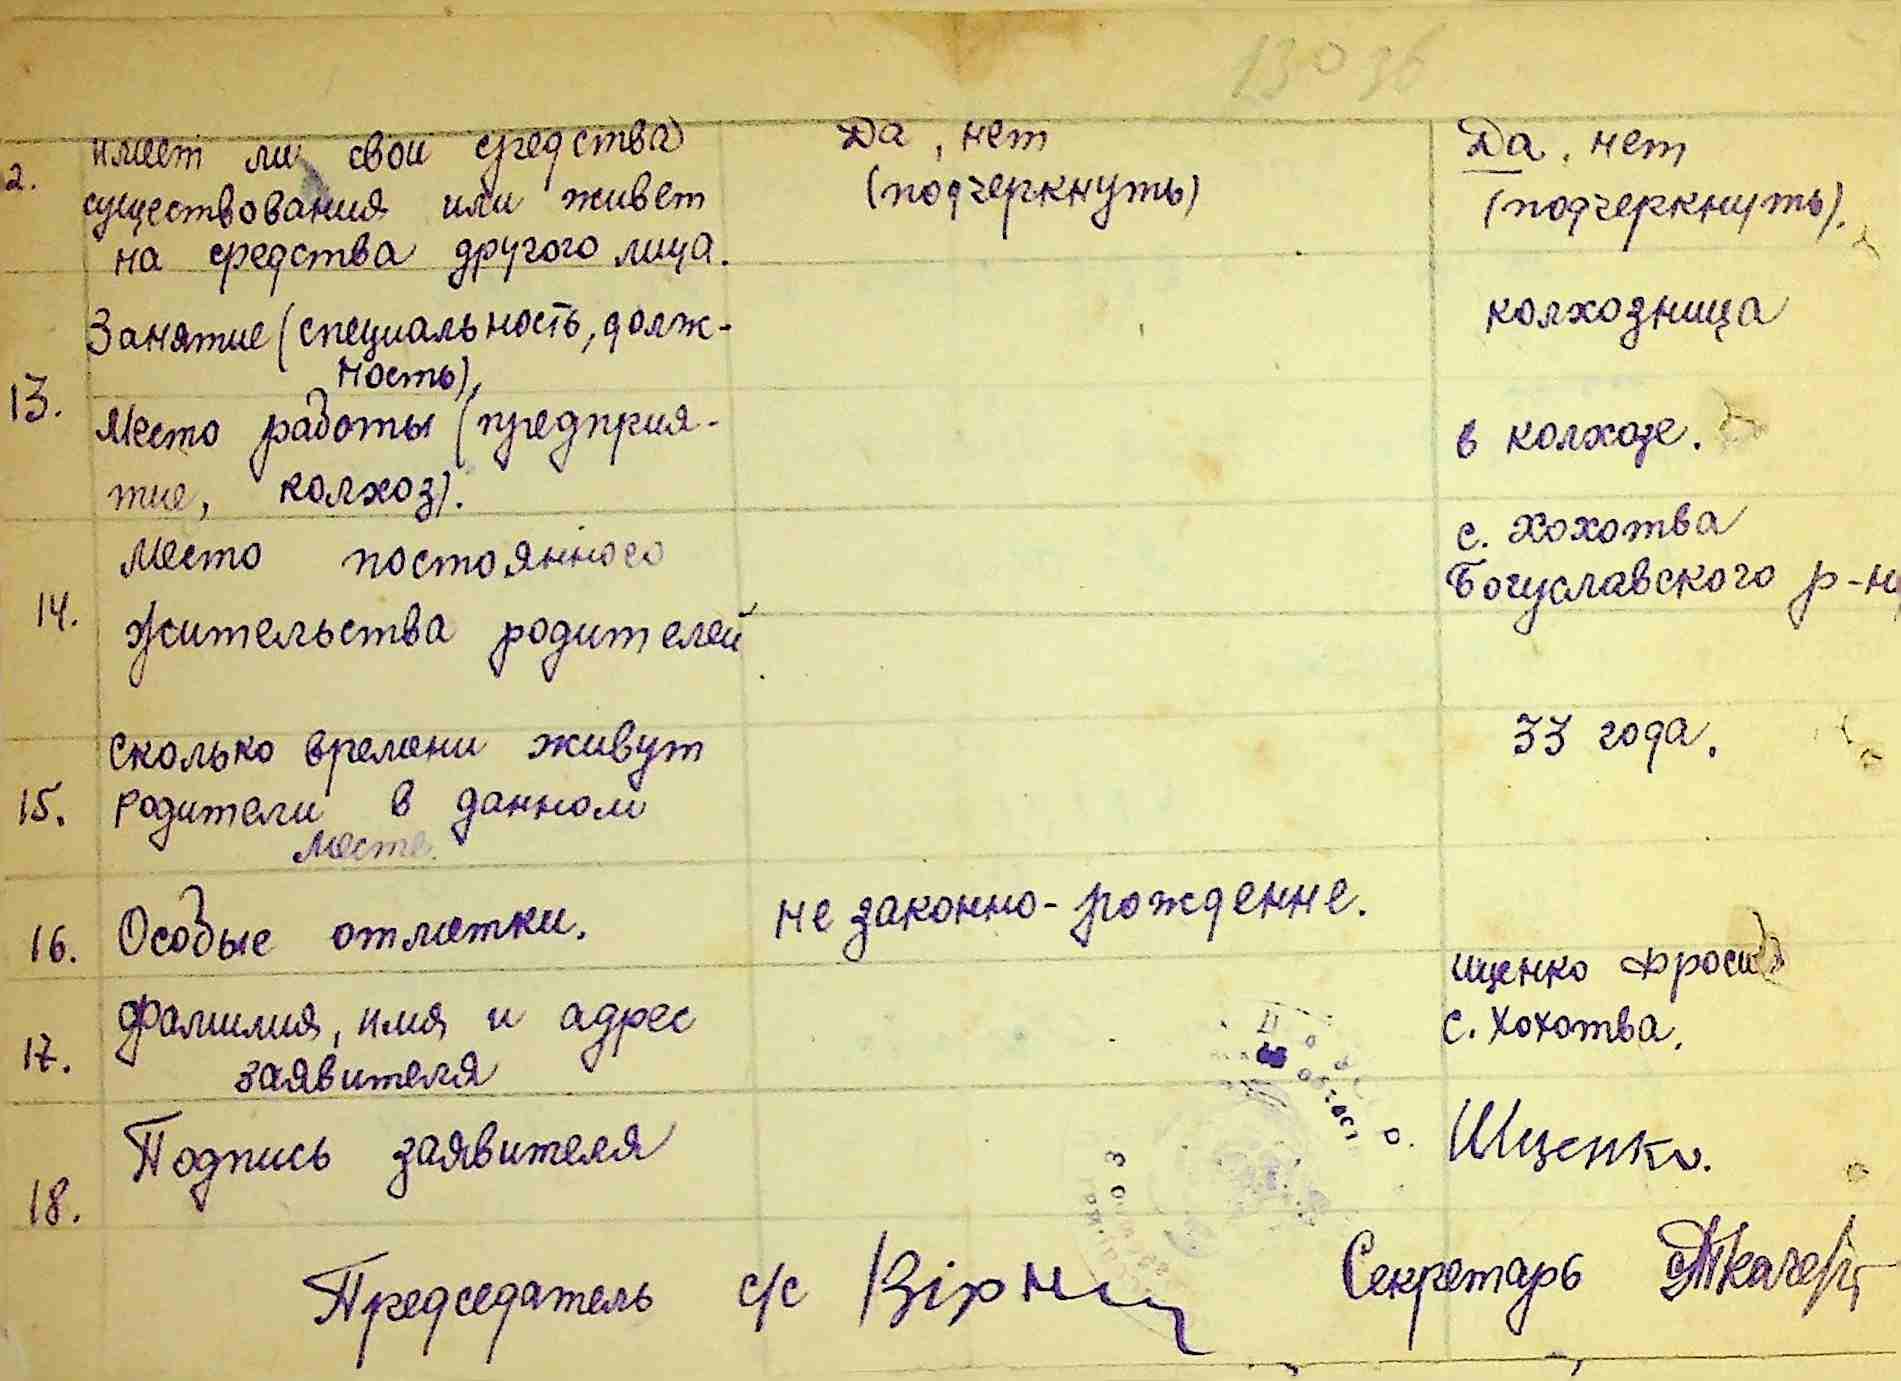 имеет ли свои средства Да, нет Да, нет
2. существования или живет (подчеркнуть) (подчеркнуть).
на средства другого лица.
Занятие (специальность, долж- колхозница
ность),
13.
Место работы (предприя- в колхозе.
тие, колхоз).
Место постоянного с. Хохотва
14. Богуславского р-н
жительства родителей
Сколько времени живут 33 года.
15. родители в данном
месте.
16. Особые отметки. не законно-рожденне.
Ищенко Фросин
17. Фамилия, имя и адрес с. Хохотва.
заявителя
Подпись заявителя Ищенко.
18.
Председатель с/с Секретарь